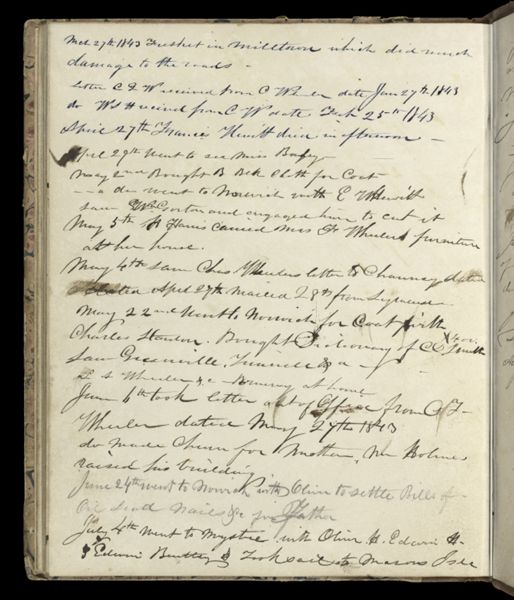 Mch 27th 1843 Freshet in Milltown which did much
damage to the roads -
Letter C I W received from C Wheeler date Jan 27th 1843
do W S H received from C W date Feb 25th 1843
April 27th Francis Hewitt died in afternoon -
April 29th Went to see Miss
May 2nd Bought B Blk Cloth for Coat
do went to Norwich with E W Hewitt
saw Wm C Gorton and engaged him to cut it
May 5th H Harris carried Miss F Wheelers furniture
at her house.
May 4th saw Chas Wheelers letter to Chauncy dated
dated April 27th mailed 28th from Syracuse
May 22nd Went to Norwich for Coat with
Charles Stanton. Bought Dictionary of C Smith
saw Greenville, Tunnell &c -
L S Wheeler &c - at home
June 6th took letter out of Office from C I -
Wheeler dated May 27th 1843
do made Churn for Mother, Mr Holmes
raised his building
June 24th went to Norwich with Oliver to settle Bills of
Oil seed Nails &c for Father
July 4th went to Mystic with Oliver H. Edwin H.
& Edwin Bentley & Took sail to Masons Isle